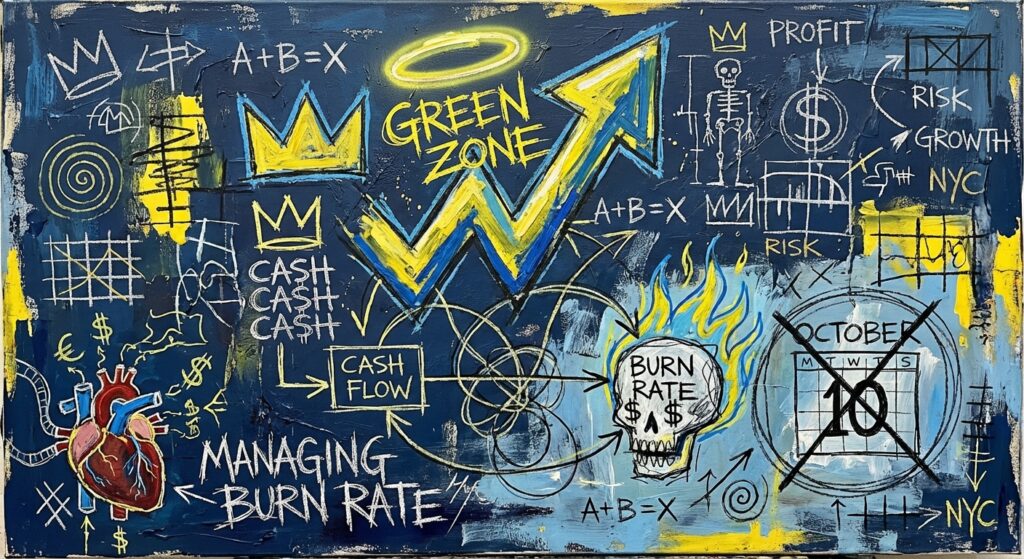 A+B=X
GREEN
ZONE
PROFIT
$
RISK
GROWTH
NYC
A+B=X
RISK
CA$H
CA$H
CA$H
CASH
FLOW
BURN
RATE
$ $
OCTOBER
M T W T S
10
$
€
$
$
$
MANAGING
BURN RATE
A+B=X
NYC
$